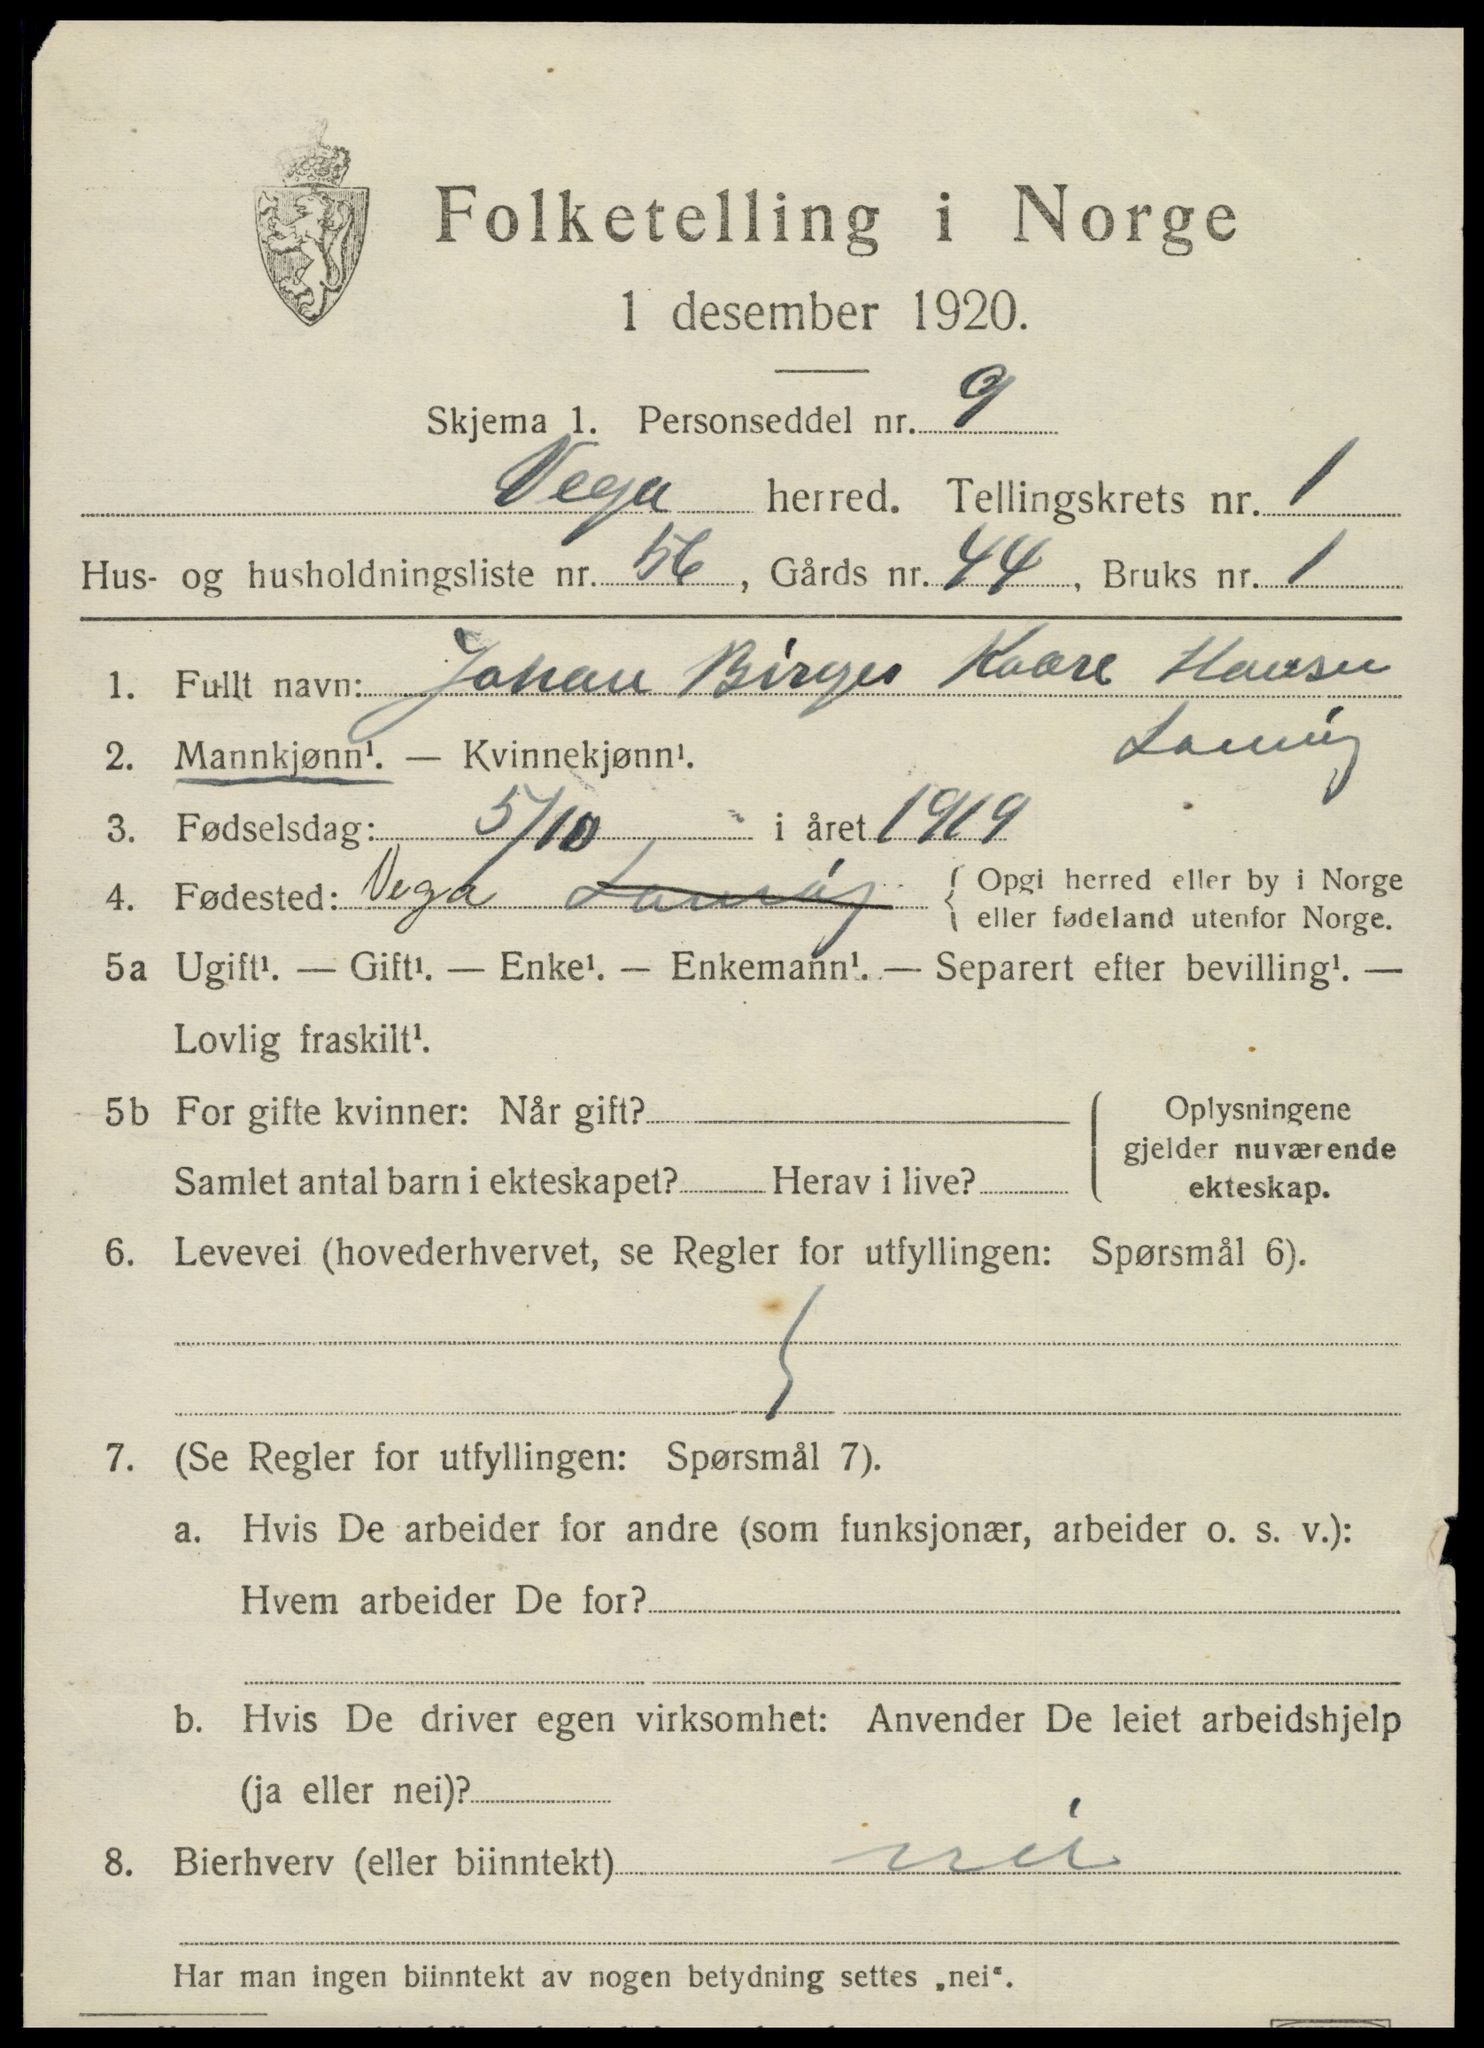 Folketelling i Norge
1 desember 1920.
Skjema 1. Personseddel nr. 9
Vega herred. Tellingskrets nr. 1
Hus- og husholdningsliste nr. 56, Gårds nr. 44, Bruks nr. 1
1. Fullt navn: Johan Birger Kaare Hansen
2. Mannkjønn¹. — Kvinnekjønn¹.
3. Fødselsdag: 5/10 i året 1919
4. Fødested: Vega { Opgi herred eller by i Norge
eller fødeland utenfor Norge.
5a Ugift¹. — Gift¹. — Enke¹. — Enkemann¹. — Separert efter bevilling¹. —
Lovlig fraskilt¹.
5b For gifte kvinner: Når gift?
Samlet antal barn i ekteskapet? Herav i live?
Oplysningene
gjelder nuværende
ekteskap.
6. Levevei (hovederhvervet, se Regler for utfyllingen: Spørsmål 6).
7. (Se Regler for utfyllingen: Spørsmål 7).
a. Hvis De arbeider for andre (som funksjonær, arbeider o. s. v.):
Hvem arbeider De for?
b. Hvis De driver egen virksomhet: Anvender De leiet arbeidshjelp
(ja eller nei)?
8. Bierhverv (eller biinntekt) nei
Har man ingen biinntekt av nogen betydning settes „nei“.